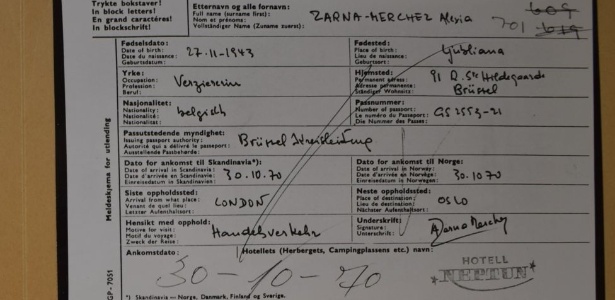 Trykte bokstaver!
In block letters!
En grand caractères!
In blockschrift!
Etternavn og alle fornavn:
Full name (surname first):
Nom et prénoms:
Vollständiger Name (Zuname zuerst):
ZARNA-MERCHEZ Alexia
701
609
619
Fødselsdato:
Date of birth:
Date du naissance:
Geburtsdatum:
27-11-1943
Fødested:
Place of birth:
Lieu de naissance:
Geburtsort:
Ljubliana
Yrke:
Occupation:
Profession:
Beruf:
Verziererin
Hjemsted:
Permanent adress:
Adresse permanente:
Ständiger Wohnsitz:
91 R. Ste Hildegaarde
Brüssel
Nasjonalitet:
Nationality:
Nationalité:
Nationalität:
belgisch
Passnummer:
Number of passport:
Le numéro du Passeport:
Die Nummer des Passes:
GS 2553-21
Passutstedende myndighet:
Issuing passport authority:
Autorité qui a délivré le passeport:
Ausstellende Passbehörde:
Brüssel Kreisleitung
Dato for ankomst til Skandinavia*):
Date of arrival in Scandinavia:
Date d'arrivée en Scandinavie:
Einreisedatum in Skandinavien:
30.10.70
Dato for ankomst til Norge:
Date of arrival in Norway:
Date d'arrivée en Norvège:
Einreisedatum in Norwegen:
30.10.70
Siste oppholdssted:
Arrival from what place:
Venant de quel lieu:
Letzter Aufenthaltsort:
LONDON
Neste oppholdssted:
Place of destination:
Lieu de destination:
Nächster Aufenthaltsort:
OSLO
Hensikt med opphold:
Motive for visit:
Motif du voyage:
Zweck der Reise:
Handelsverkehr
Underskrift:
Signature:
Unterschrift:
AZarna Merchez
Ankomstdato:
30-10-70
Hotellets (Herbergets, Campingplassens etc.) navn:
HOTELL
NEPTUN
*) Skandinavia — Norge, Danmark, Finland og Sverige.
Meldeskjema for utlending
GP - 7051